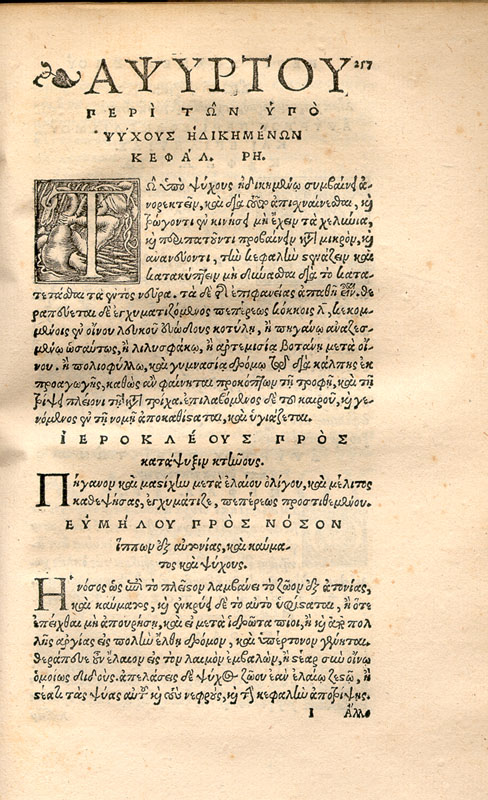 ΑΨΥΡΤΟΥ 257
ΠΕΡὶ ΤΩ͂Ν ΥΠὸ
ΨΥΧΟΥΣ ἨΔΙΚΗΜΈΝΩΝ
ΚΕΦΆΛ. ΡΗ.
Τῷ ὑπὸ ψύχους ἠδικημένῳ συμβαίνει ἀ-
νορεκτεῖν, καὶ διὰ τοῦτο ἀπιχναίνεσθαι, καὶ
τρώγοντι ἐν κινήσει μὴ ἔχειν τὰ χελώνια,
καὶ περιπατοῦντι προβαίνειν κατὰ μικρὸν, καὶ
τὴν κεφαλὴν καὶ
κατακύπτειν μὴ δύναται διὰ τὸ κατα-
τετάσθαι τὰ ἐντὸς νεῦρα. τὰ δὲ ἐπιφανείας ἀπαθῆ εἶναι. θε
ραπεύεται δὲ ἐγχυματιζόμενος πεπέρεως κόκκοις λ, κεκομ-
μένοις ἐν οἴνου λευκοῦ εὐώδους κοτύλῃ, ἢ πηγάνῳ ἀναζεσ-
μένῳ ὡσαύτως, ἢ λιλυσφάκῳ, ἢ ἀρτεμισίᾳ βοτάνῃ μετὰ οἴ-
νου. ἢ πολιοφύλλῳ, καὶ γυμνασίᾳ δρόμῳ διὰ κάλπης ἐκ
προαγωγῆς, καθὼς ἂν φαίνηται προκόπτων τῇ τροφῇ, καὶ τῇ
τρίψει πλείονι τῇ κατὰ τρίχα. ἐπιλαβόμενος δὲ τοῦ καιροῦ, καὶ γε-
νόμενος ἐν τῇ νομῇ ἀποκαθίσαται, καὶ ὑγιάζεται.
ἹΕΡΟΚΛΈΟΥΣ ΠΡῸΣ
κατάψυξιν κτηνους.
Πήγανον καὶ μασίχην μετὰ ἐλαίου ὀλίγου, καὶ μέλιτος
καθεψήσας, ἐγχυμάτιζε, πεπέρεως προστιθεμένου.
ΕΥΜΉΛΟΥ ΠΡῸΣ ΝΌΣΟΝ
ἵππων ἐξ ἀτονίας, καὶ καύμα-
τος καὶ ψύχους.
Ἡ νόσος ὡς ἐπὶ τὸ πλεῖσον λαμβάνει τὸ ζῶον ἐξ ἀτονίας,
καὶ καύματος, καὶ δὲ τὸ αὐτὸ ὑφίσαται, ἢ ὅτε
ἐπείχθαι μὴ ἀπουρήσῃ, καὶ εἰ μετὰ ἱδρῶτα πίοι, ἢ καὶ ἀπὸ πολ
λῆς ἀργίας εἰς πολὺν ἔλθῃ δρόμον, καὶ ὑπέρτονον γένηται.
θεράπευε οὖν ἔλαιον εἰς τὸν λαιμὸν ἐμβαλὼν, ἢ σέαρ σὺν οἴνῳ
ὁμοίως διδούς. ἀπελάσεις δὲ ψύχος ζώου ἐὰν ἐλαίῳ ζεσῷ, ἢ
σέατι τὰς ψύας αὐτοῦ καὶ τοὺς νεφρούς, καὶ τὴν κεφαλὴν ἀποτρίψῃς.
I ἄλλο